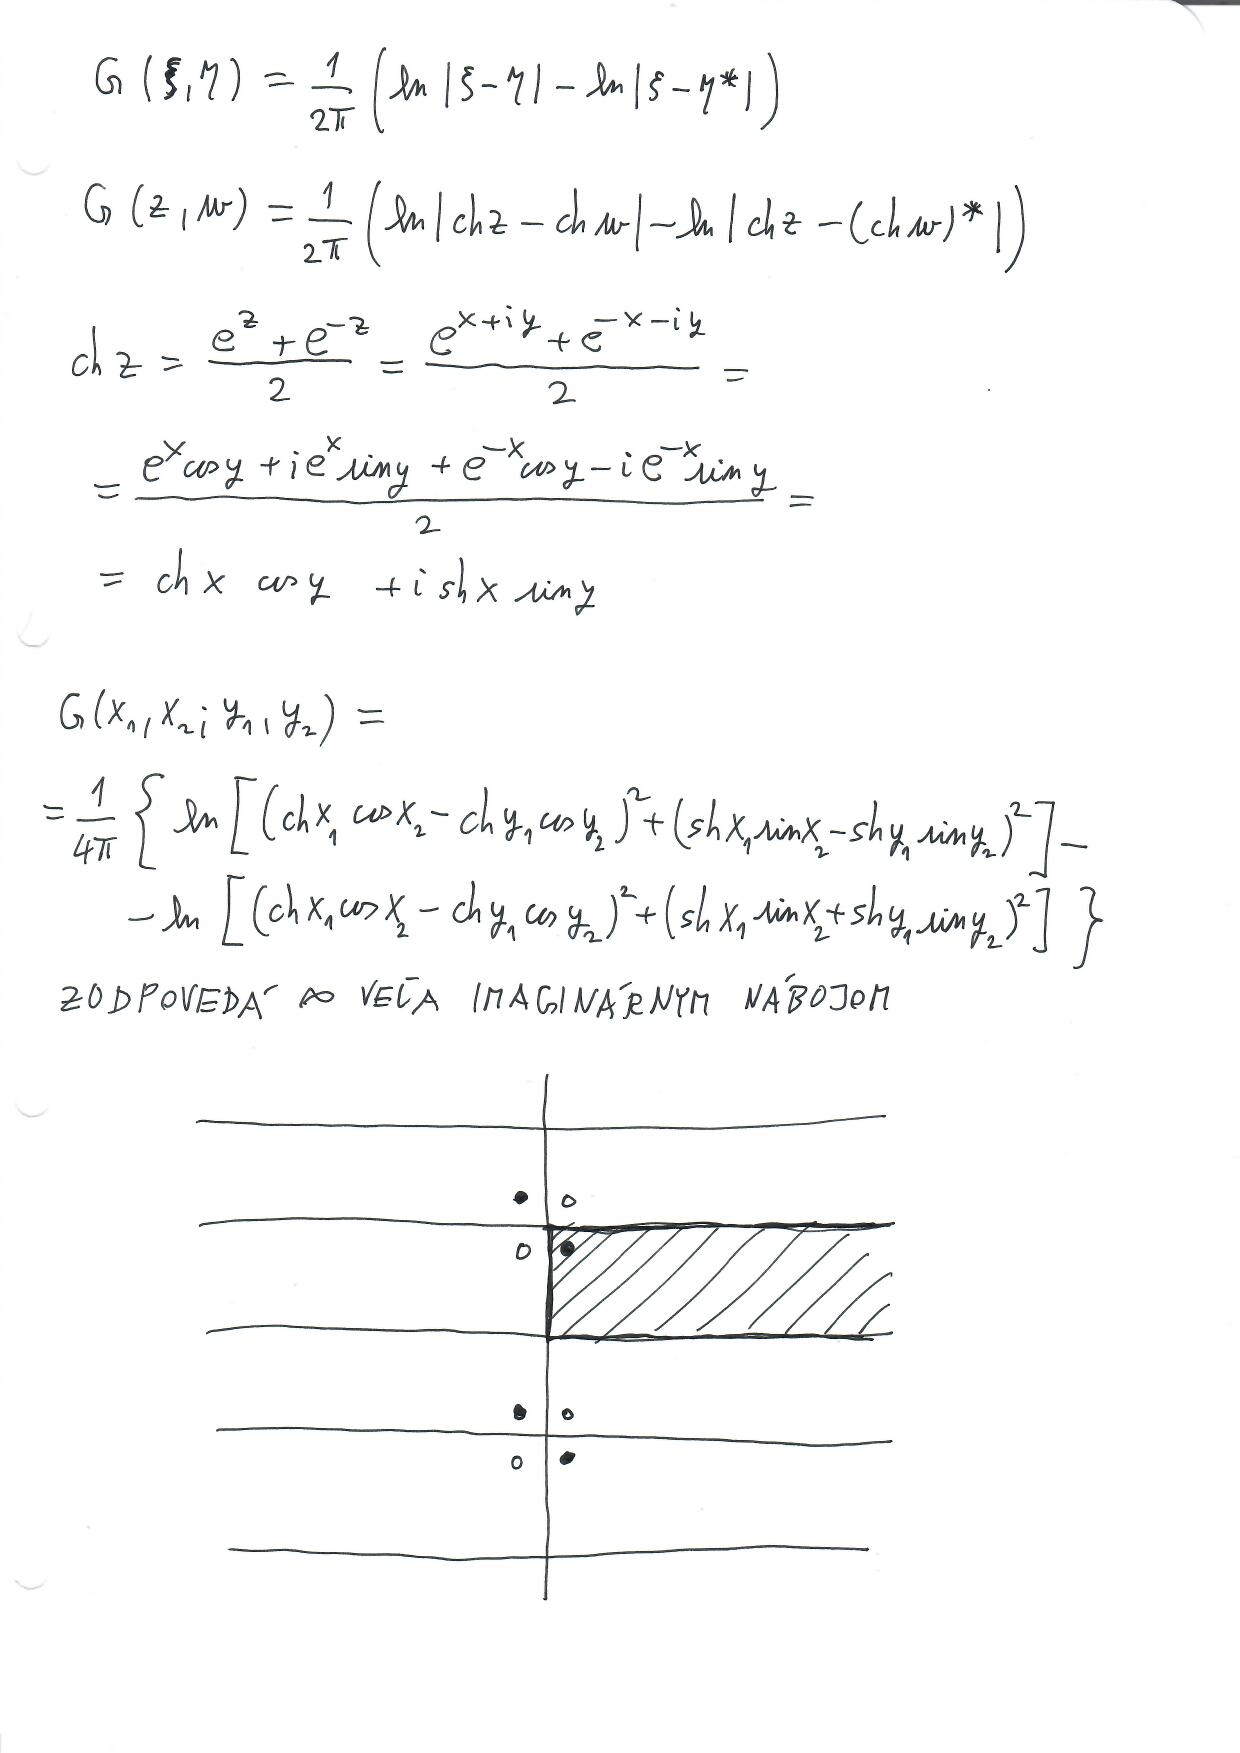 G(ξ,η) = 1/2π (ln|ξ-η| - ln|ξ-η*|)
G(z,w) = 1/2π (ln|ch z - ch w| - ln|ch z - (ch w)*|)
ch z = (e^z + e^{-z})/2 = (e^{x+iy} + e^{-x-iy})/2 =
= (e^x cos y + i e^x sin y + e^{-x} cos y - i e^{-x} sin y)/2 =
= ch x cos y + i sh x sin y
G(x₁, x₂; y₁, y₂) =
= 1/4π { ln [(ch x₁ cos x₂ - ch y₁ cos y₂)² + (sh x₁ sin x₂ - sh y₁ sin y₂)²] -
- ln [(ch x₁ cos x₂ - ch y₁ cos y₂)² + (sh x₁ sin x₂ + sh y₁ sin y₂)²] }
ZODPOVEDÁ ∞ VEĽA IMAGINÁRNYM NÁBOJOM